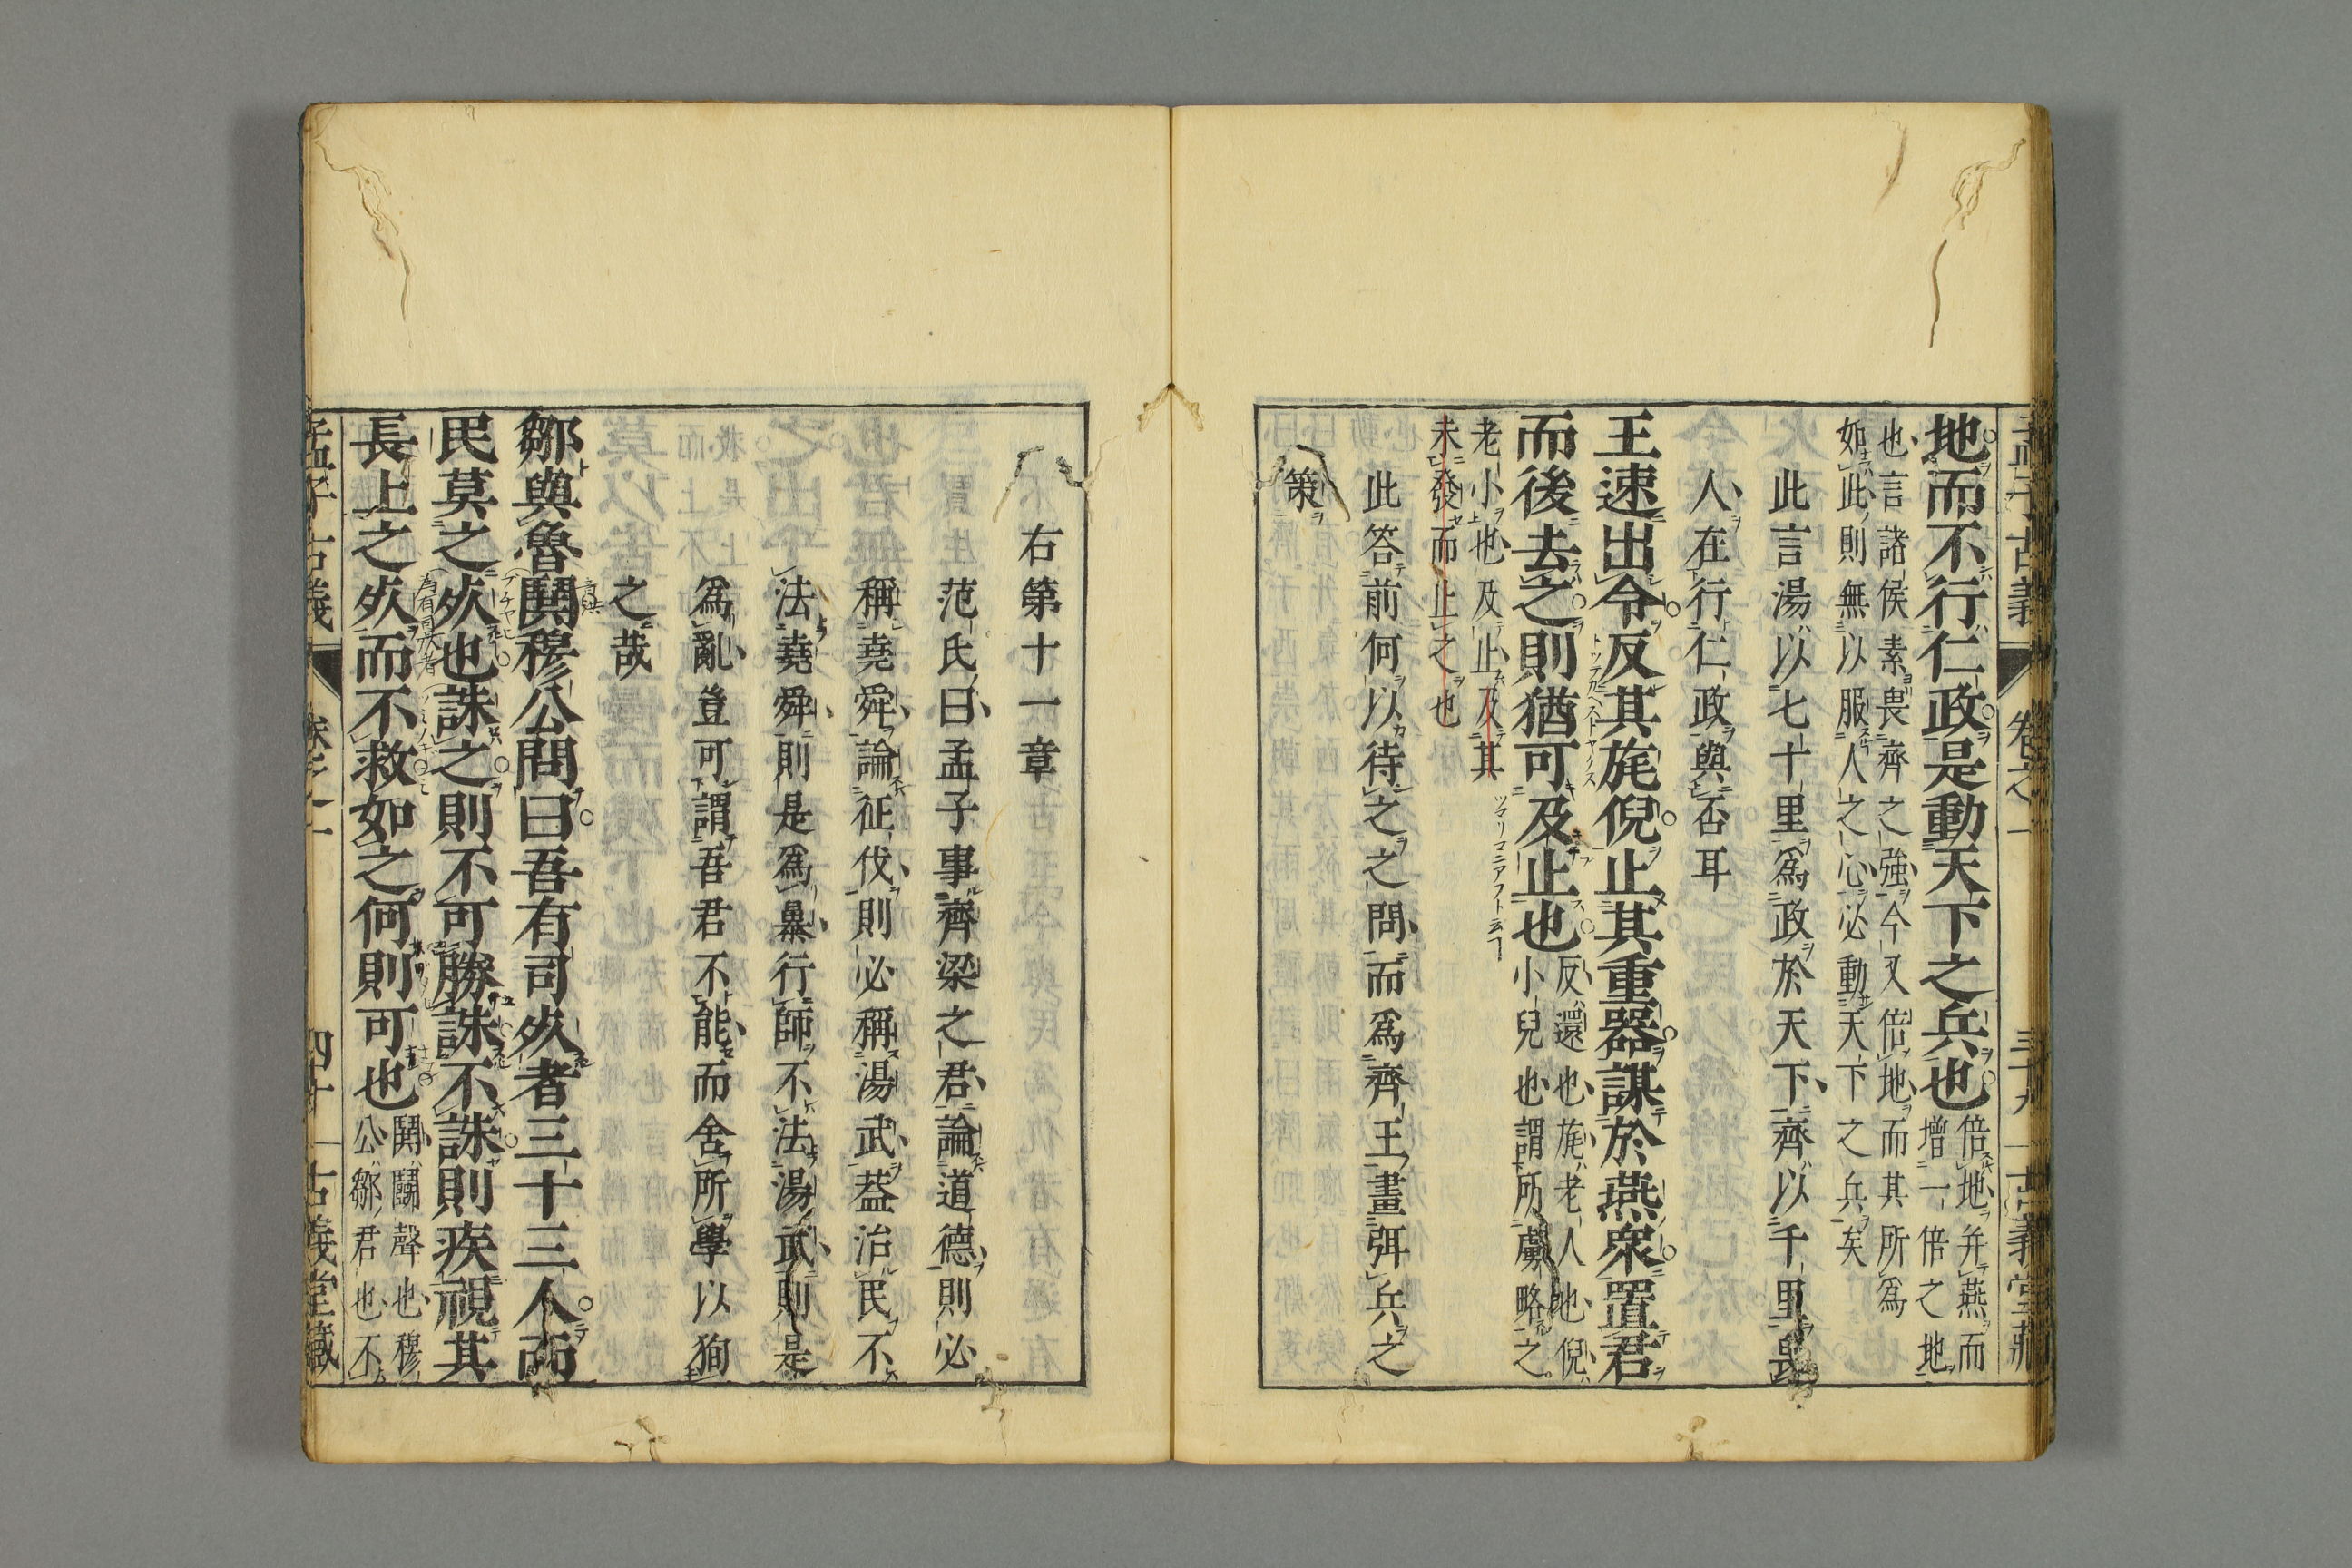 孟子古義 卷之一 三十九 古義堂藏
地而不行仁政是動天下之兵也
倍地并燕而
增一倍之地
也言諸侯素畏齊之強今又倍地而其所爲
如此則無以服人之心必動天下之兵矣
此言湯以七十里爲政於天下齊以千里畏
人在行仁政與否耳
王速出令反其旄倪止其重器謀於燕衆置君
而後去之則猶可及止也
反還也旄老人也倪
小兒也謂所虜略之
老小也及止及其
未發而止之也
此答前何以待之之問而爲齊王畫弭兵之
策
右第十一章
范氏曰孟子事齊梁之君論道德則必
稱堯舜論征伐則必稱湯武蓋治民不
法堯舜則是爲暴行師不法湯武則是
爲亂豈可謂吾君不能而舍所學以狥
之哉
鄒與魯鬨穆公問曰吾有司死者三十三人而
民莫之死也誅之則不可勝誅不誅則疾視其
長上之死而不救如之何則可也
鬨鬭聲也穆
公鄒君也不
孟子古義 卷之一 四十 古義堂藏